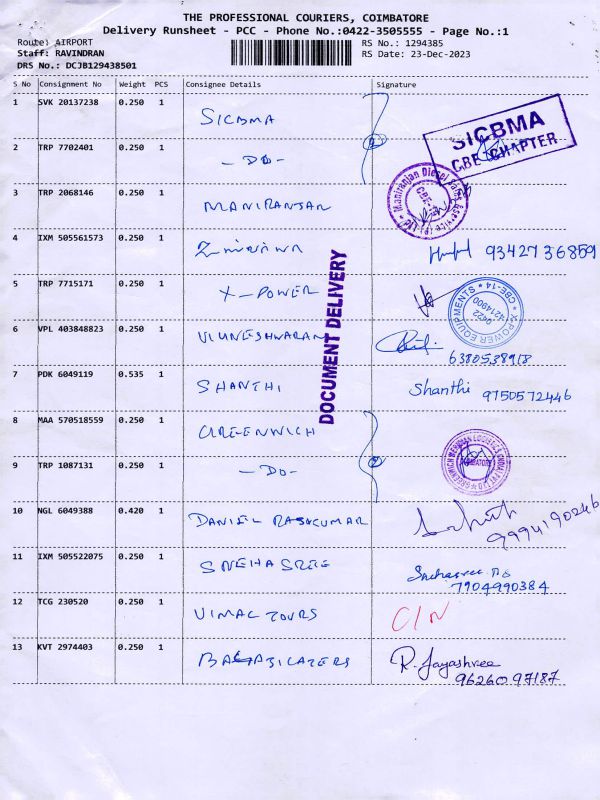 THE PROFESSIONAL COURIERS, COIMBATORE
Delivery Runsheet - PCC - Phone No.:0422-3505555 - Page No.:1
Route: AIRPORT
Staff: RAVINDRAN
DRS No.: DCJB129438501
RS No.: 1294385
RS Date: 23-Dec-2023
S No Consignment No Weight PCS Consignee Details Signature
1 SVK 20137238 0.250 1 SICBMA
SICBMA
CBE-CHAPTER
2 TRP 7702401 0.250 1 - DO -
3 TRP 2068146 0.250 1 MANIRANJAN
Maniranjan Diesel Sales & Service (P) Ltd
CBE
4 IXM 505561573 0.250 1 9342736859
5 TRP 7715171 0.250 1 X-POWER
X-POWER EQUIPMENTS CBE-14
0422
4214900
DOCUMENT DELIVERY
6 VPL 403848823 0.250 1 VIGNESHWARAN
6380538918
7 PDK 6049119 0.535 1 SHANTHI Shanthi 9750572446
8 MAA 570518559 0.250 1 GREENWICH
GREENWICH MERIDIAN LOGISTICS (INDIA) PVT LTD
COIMBATORE
9 TRP 1087131 0.250 1 - DO -
10 NGL 6049388 0.420 1 DANIEL RAJKUMAR
9994190246
11 IXM 505522075 0.250 1 SNEHA SREE
7904990384
12 TCG 230520 0.250 1 VIMAL TOURS C/N
13 KVT 2974403 0.250 1 R. Jayashree
9626097187